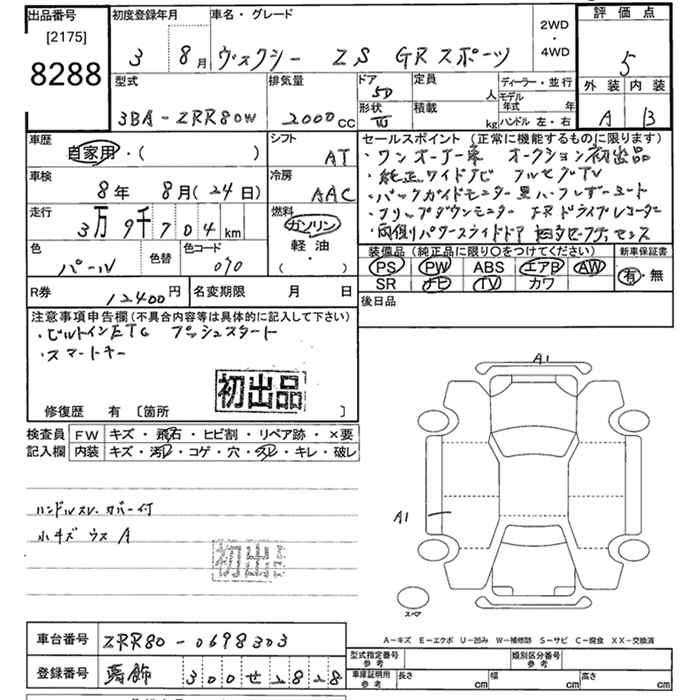 出品番号
[2175]
8288
初度登録年月
3 8月
車名・グレード
ヴォクシー ZS GRスポーツ
2WD
・
4WD
評価点
5
外装 内装
A B
型式
3BA-ZRR80W
排気量
2000cc
ドア
5D
形状
定員
人
積載
kg
ディーラー・並行
モデル年式 年
ハンドル 左・右
車歴
自家用・( )
シフト
AT
車検
8年 8月(24日)
冷房
AAC
走行
3万9千704km
燃料
ガソリン
軽油
( ・ )
色
パール
色替
色コード
070
R券
12400円
名変期限 月 日
セールスポイント (正常に機能するものに限ります)
・ワンオーナー車 オークション初出品
・純正ワイドナビ フルセグTV
・バックガイドモニター 黒ハーフレザーシート
・フリップダウンモニター 前後ドライブレコーダー
・両側パワースライドドア
装備品 (純正品に限り○をつけてください)
PS PW ABS エアB AW
SR ナビ TV カワ
新車保証書
有・無
後日品
注意事項申告欄(不具合内容等は具体的に記入して下さい)
・ビルトインETC プッシュスタート
・スマートキー
初出品
修復歴 有 [箇所 ]
検査員記入欄
FW キズ・飛石・ヒビ割・リペア跡・×要
内装 キズ・汚レ・コゲ・穴・スレ・キレ・破レ
ハンドルスレ カバー付
小キズ ウスA
初出品
A1
A1
スペア
A-キズ E-エクボ U-凹み W-補修跡 S-サビ C-腐食 XX-交換済
車台番号
ZRR80-0698303
登録番号
300せ2828
型式指定番号 参考
類別区分番号 参考
車庫証明用 参考
長さ cm 幅 cm 高さ cm